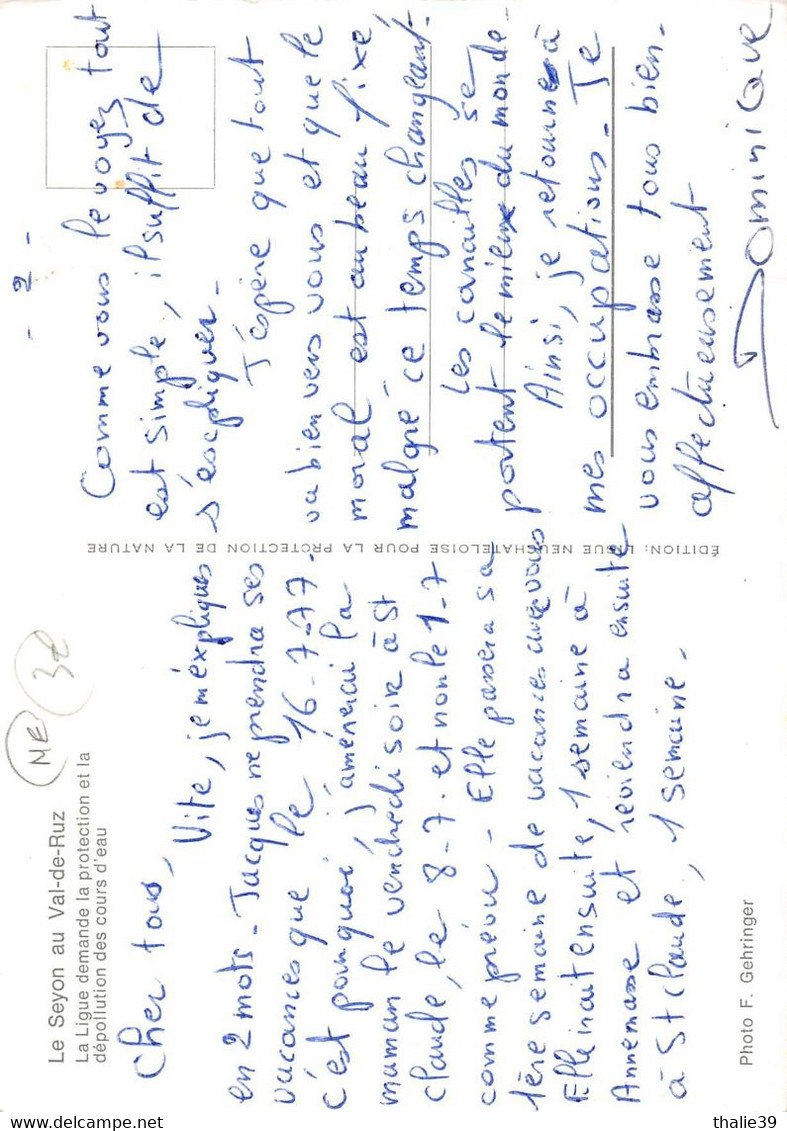 Le Seyon au Val-de-Ruz
La Ligue demande la protection et la
dépollution des cours d'eau
NE
Cher tous,
Vite, je m'éxpliques
en 2 mots - Jacques ne prendra ses
vacances que le 16-7-77-
c'est pourquoi, j'amènerai la
maman le vendredi soir à St
Claude, le 8-7- et non le 1-7
comme prévu - Elle passera sa
1ère semaine de vacances avec vous
Elle irait ensuite, 1 semaine à
Annemasse et reviendra ensuite
à St Claude, 1 semaine.
Photo F. Gehringer
ÉDITION: LIGUE NEUCHATELOISE POUR LA PROTECTION DE LA NATURE
- 2 -
Comme vous le voyez tout
est simple, il suffit de
s'expliquer -
J'espère que tout
va bien vers vous et que le
moral est au beau fixe
malgré ce temps changeant.
Les canailles se
portent le mieux du monde.
Ainsi, je retourne à
mes occupations - Je
vous embrasse tous bien
affectueusement
Dominique
www.delcampe.net
thalie39